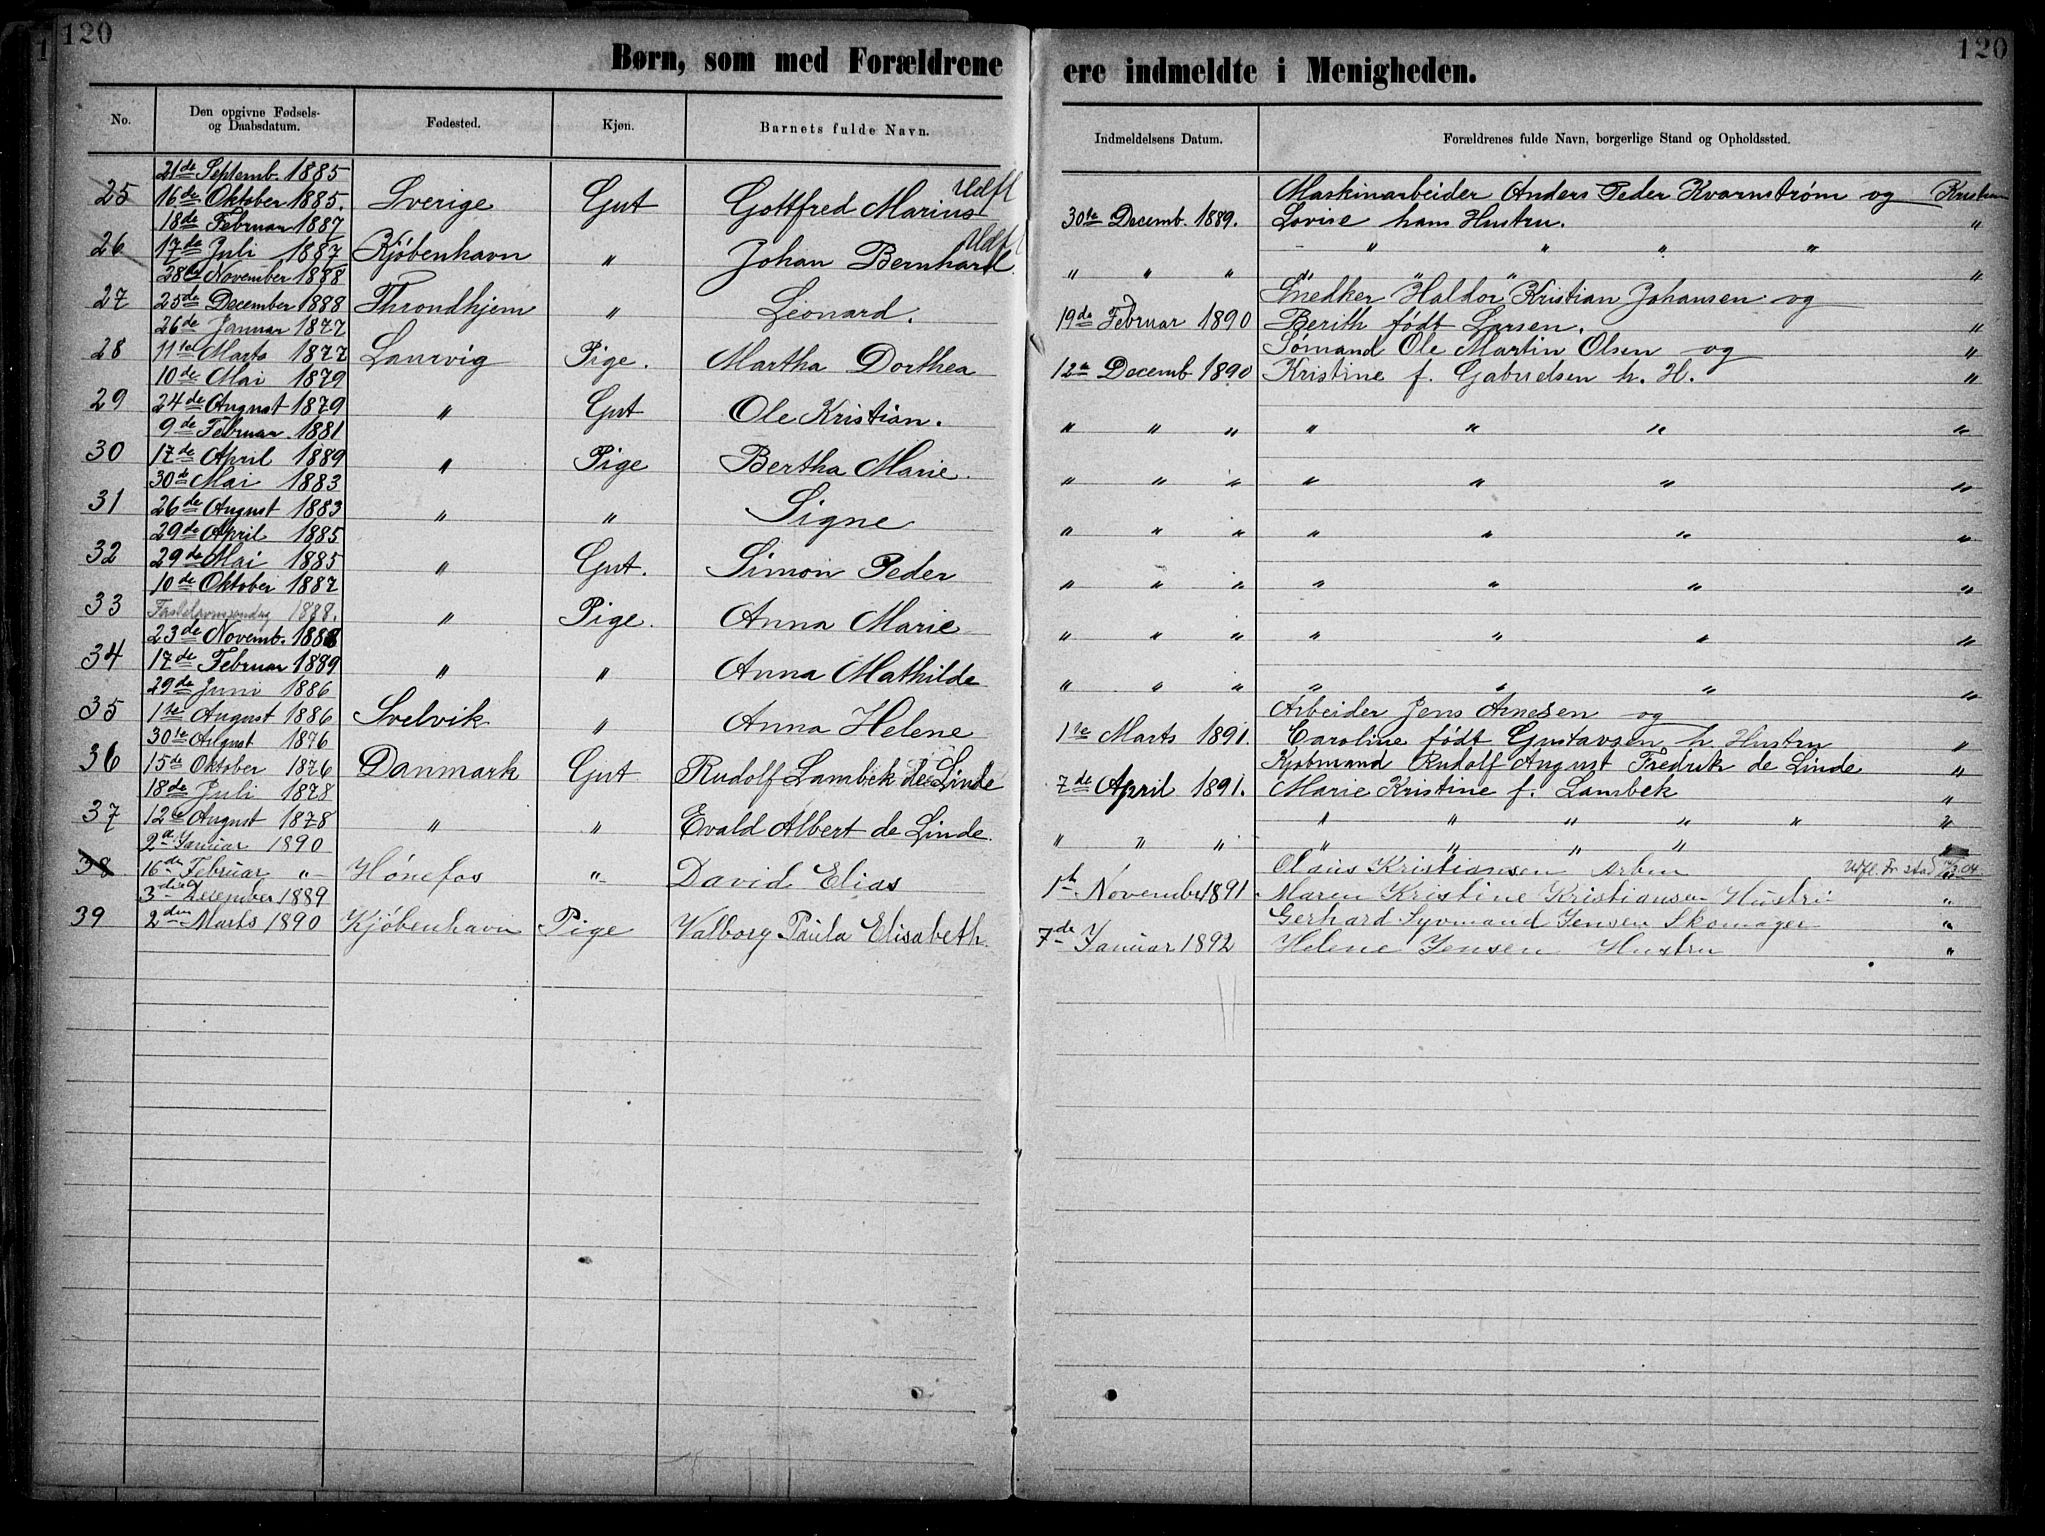 120
Børn, som med Forældrene
No.
Den opgivne Fødsels- og Daabsdatum.
Fødested.
Kjøn.
Barnets fulde Navn.
21de Septemb. 1885
25 16de Oktober 1885. Sverige Gut Gottfred Marius Udfl
18de Februar 1887
26 17de Juli 1887 Kjøbenhavn " Johan Bernhard Udfl
28de November 1888
27 25de December 1888 Throndhjem " Leonard.
26de Januar 1877
28 11te Marts 1877 Laurvig Pige. Martha Dorthea
10de Mai 1879
29 24de August 1879 " Gut Ole Kristian.
9de Februar 1881
30 17de April 1889 " Pige Bertha Marie.
30de Mai 1883
31 26de August 1883 " " Signe
29de April 1885
32 29de Mai 1885 " Gut. Simon Peder
10de Oktober 1887
33 Fastelavnssøndag 1888. " Pige. Anna Marie
23de Novemb. 1888
34 17de Februar 1889 " " Anna Mathilde
29de Juni 1886
35 1ste August 1886 Svelvik " Anna Helene
30te August 1876
36 15de Oktober 1876 Danmark Gut Rudolf Lambek de Linde
18de Juli 1878
37 12te August 1878 " " Evald Albert de Linde.
2d Januar 1890
38 16de Februar " Hønefos " David Elias
3die December 1889
39 2den Marts 1890 Kjøbenhavn Pige Valborg Paula Elisabeth
120
ere indmeldte i Menigheden.
Indmeldelsens Datum.
Forældrenes fulde Navn, borgerlige Stand og Opholdssted.
Maskinarbeider Anders Peder Kvarnstrøm og
30te Decemb. 1889. Lovise hans Hustru. "
" " " "
" " " "
Snedker Haldor Kristian Johansen og
19de Februar 1890 Berith født Larsen. "
Sømand Ole Martin Olsen og "
12te Decemb 1890 Kristine f. Gabrielsen h. H. "
" " " " " " "
" " " " " " "
" " " " " " "
" " " " " " "
" " " " " " "
" " " " " " "
Arbeider Jens Arnesen og
1ste Marts 1891. Caroline født Gustavsen h. Hustru "
Kjøbmand Rudolf August Fredrik de Linde "
7de April 1891. Marie Kristine f. Lambek "
" " " " " "
" " " " " " "
Olaus Kristiansen Arben Udfl. Fr.stad
1ste November 1891. Maren Kristine Kristiansen Hustru "
Gerhard Syvmand Jensen Skomager "
7de Januar 1892 Helene Jensen Hustru "